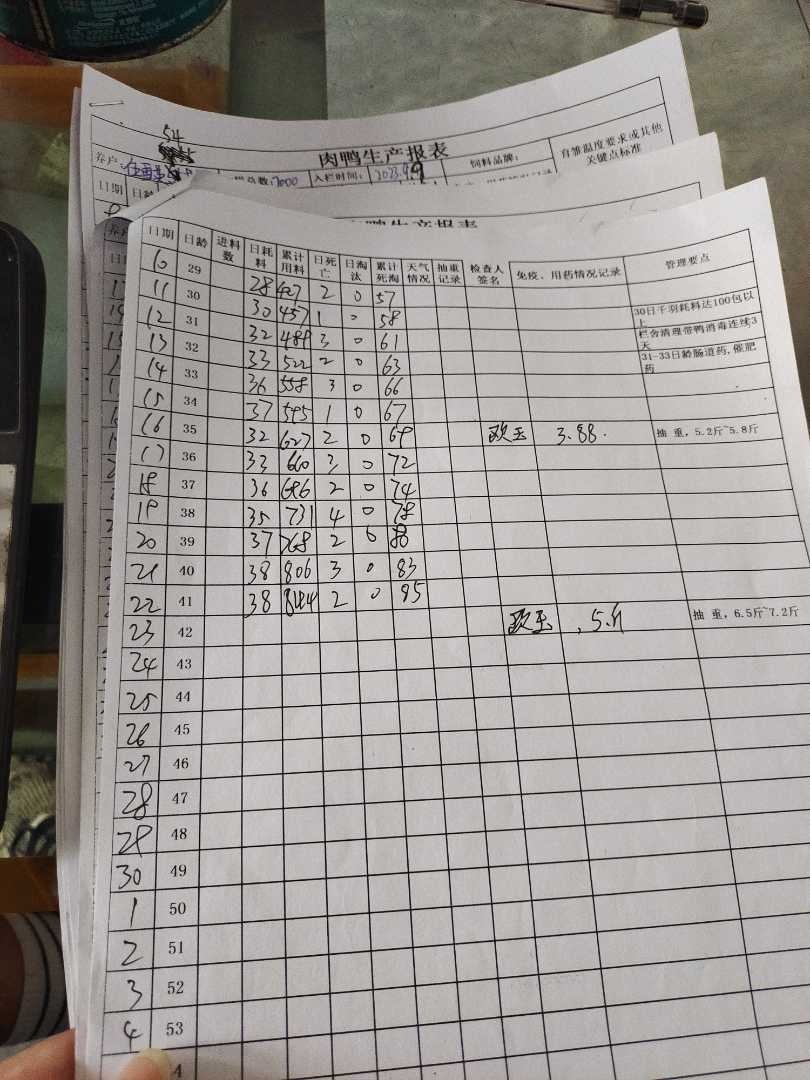 54
肉鸭生产报表
养户: 总数:7000 入栏时间: 2023.9.9 饲料品牌: 育雏温度要求或其他关键点标准
日期 日龄
肉鸭生产报表
日期 日龄 进料数 日耗料 累计用料 日死亡 日淘汰 累计死淘 天气情况 抽重记录 检查人签名 免疫、用药情况记录 管理要点
10 29 28 427 2 0 57
11 30 30 457 1 0 58 30日千羽耗料达100包以上
12 31 32 489 3 0 61 栏舍清理带鸭消毒连续3天
13 32 33 522 2 0 63 31-33日龄肠道药,催肥药
14 33 36 558 3 0 66
15 34 37 595 1 0 67
16 35 32 627 2 0 69 3.88. 抽 重,5.2斤~5.8斤
17 36 33 660 3 0 72
18 37 36 696 2 0 74
19 38 35 731 4 0 78
20 39 37 768 2 0 80
21 40 38 806 3 0 83
22 41 38 844 2 0 85
23 42 5.斤 抽 重,6.5斤~7.2斤
24 43
25 44
26 45
27 46
28 47
29 48
30 49
1 50
2 51
3 52
4 53
4